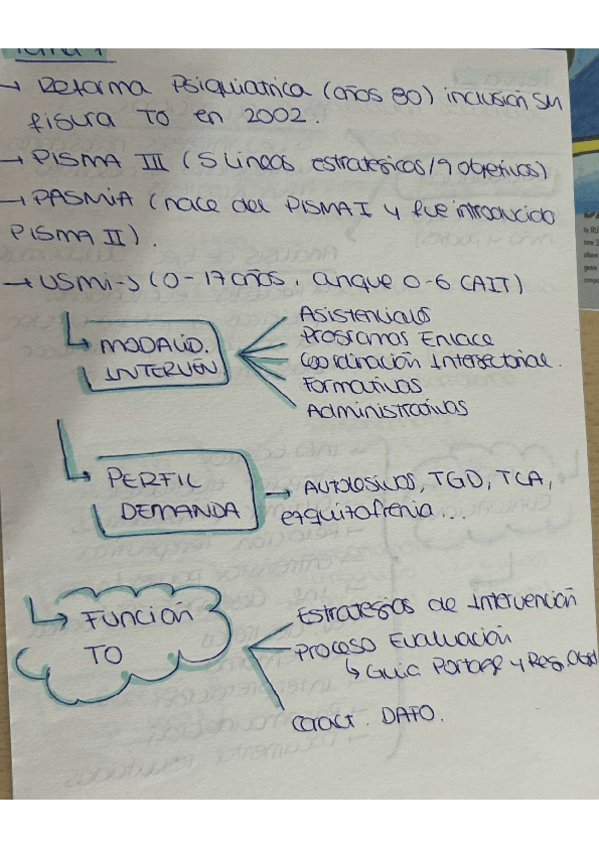 Tema 1
→ Reforma Psiquiatrica (años 80) inclusión SM
figura TO en 2002.
→ PISMA III (5 Lineas estrategicas/9 objetivos)
→ PASMIA (nace del PISMA I y fue introducido
PISMA II).
→ USMI-J (0-17 años, anque 0-6 CAIT)
↳ MODALID.
INTERVEN
Asistenciales
Programas Enlace
Coordinación Intersectorial.
Formativas
Administrativas
↳ PERFIL
DEMANDA
→ Autolesivos, TGD, TCA,
esquizofrenia...
↳ Función
TO
Estrategias de Intervención
Proceso Evaluación
↳ Guía Portage y Reg.
Caract. DAFO.